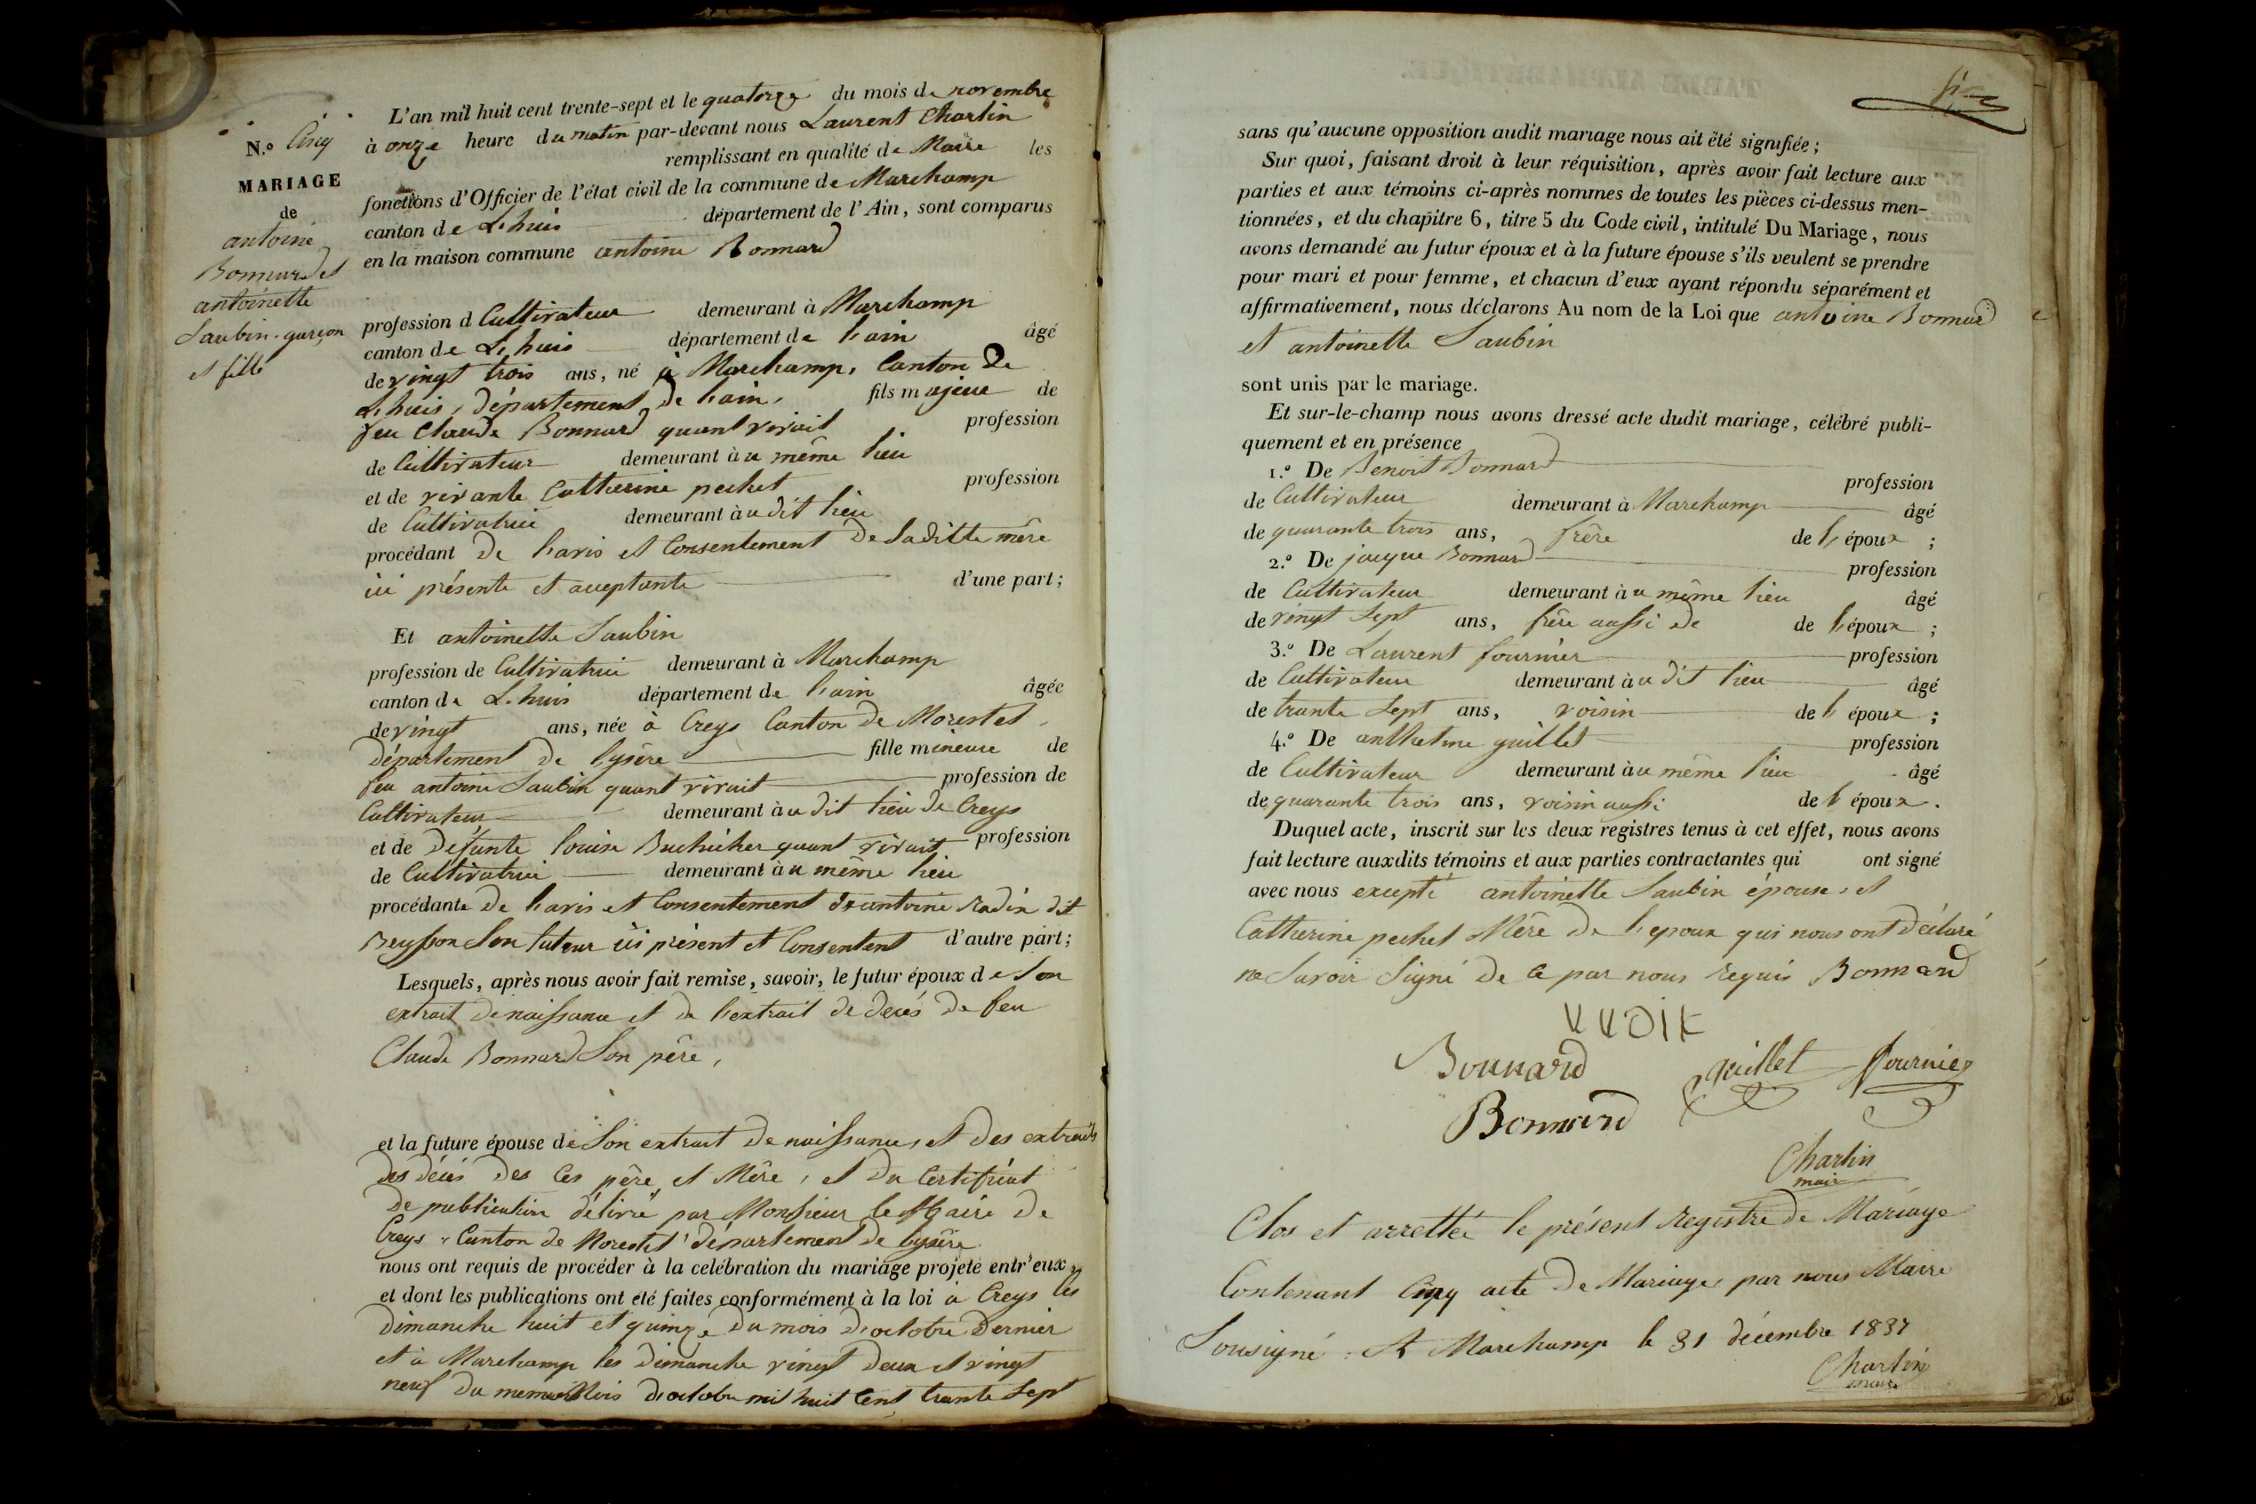 N.º Cinq
MARIAGE
de
antoine
Bonnard et
antoinette
Saubin garçon
et fille
L'an mil huit cent trente-sept et le quatorze du mois de novembre
à onze heure du matin par-devant nous Laurent Charlin
remplissant en qualité de Maire les
fonctions d'Officier de l'état civil de la commune de Marchamp
canton de Lhuis département de l'Ain, sont comparus
en la maison commune antoine Bonnard
profession d Cultivateur demeurant à Marchamp
canton de Lhuis département de l'ain âgé
de vingt trois ans, né à Marchamp, Canton de
Lhuis, département de l'ain, fils majeur de
feu Claude Bonnard quant vivait profession
de Cultivateur demeurant à u même lieu
et de vivante Catherine pechet profession
de Cultivatrice demeurant à u dit lieu
procédant de l'avis et Consentement de laditte mêre
ici présente et aceptante d'une part;
Et antoinette Saubin
profession de Cultivatrice demeurant à Marchamp
canton de Lhuis département de l'ain âgée
de vingt ans, née à Creys Canton de Morestel
département de l'ysère fille mineure de
feu antoine Saubin quant vivait profession de
Cultivateur demeurant à u dit lieu de Creys
et de défunte louise quant vivait profession
de Cultivatrice demeurant à u même lieu
procédante de l'avis et Consentement antoine dit
son tuteur ici présent et Consentent d'autre part;
Lesquels, après nous avoir fait remise, savoir, le futur époux de son
extrait de naissance et de l'extrait de decés de feu
Claude Bonnard son pêre,
et la future épouse de son extrait de naissance, et des extraits
des décés des ces pêre et Mêre, et du Certificat
de publication délivré par Monsieur le Maire de
Creys Canton de Morestel département de lysêre
nous ont requis de procéder à la celébration du mariage projeté entr'eux,
et dont les publications ont été faites conformément à la loi à Creys les
dimanche huit et quinze du mois d'octobre dernier
et à Marchamp les dimanche vingt deux et vingt
neuf du meme Mois d'octobre mil huit Cent trante sept
sans qu'aucune opposition audit mariage nous ait été signifiée;
Sur quoi, faisant droit à leur réquisition, après avoir fait lecture aux
parties et aux témoins ci-après nommes de toutes les pièces ci-dessus men-
tionnées, et du chapitre 6, titre 5 du Code civil, intitulé Du Mariage, nous
avons demandé au futur époux et à la future épouse s'ils veulent se prendre
pour mari et pour femme, et chacun d'eux ayant répondu séparément et
affirmativement, nous déclarons Au nom de la Loi que antoine Bonnard
et antoinette Saubin
sont unis par le mariage.
Et sur-le-champ nous avons dressé acte dudit mariage, célébré publi-
quement et en présence
1.º De Benoit Bonnard profession
de Cultivateur demeurant à Marchamp âgé
de quarante trois ans, frêre de l'époux ;
2.º De jacque Bonnard profession
de Cultivateur demeurant à u même lieu âgé
de vingt sept ans, frêre aussi de de l'époux ;
3.º De Laurent fournier profession
de Cultivateur demeurant à u dit lieu âgé
de trante sept ans, voisin de l'époux ;
4.º De anthelme guillet profession
de Cultivateur demeurant à u même lieu âgé
de quarante trois ans, voisin aussi de l'époux.
Duquel acte, inscrit sur les deux registres tenus à cet effet, nous avons
fait lecture auxdits témoins et aux parties contractantes qui ont signé
avec nous excepté antoinette Saubin épouse, et
Catherine pechet Mêre de l'epoux qui nous ont déclaré
ne savoir signé de ce par nous requis Bonnard
Bonnard guillet fournier
Bonnard
Charlin
maire
Clos et arrettée le présent registre de Mariage
Contenant Cinq acte de Mariage par nous Maire
Sousigné A Marchamp le 31 décembre 1837
Charlin
maire